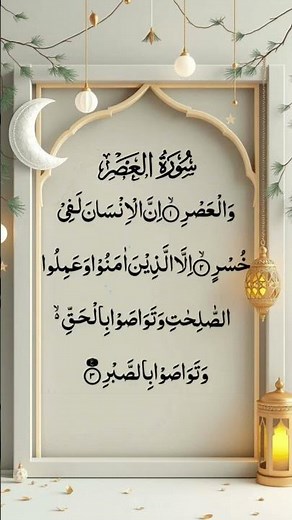 سُوْرَةُ الْعَصْرِ
وَالْعَصْرِ ۝١ اِنَّ الْاِنْسَانَ لَفِيْ
خُسْرٍ ۝٢ اِلَّا الَّذِيْنَ اٰمَنُوْا وَعَمِلُوا
الصّٰلِحٰتِ وَتَوَاصَوْا بِالْحَقِّ ەۙ
وَتَوَاصَوْا بِالصَّبْرِ ۝٣